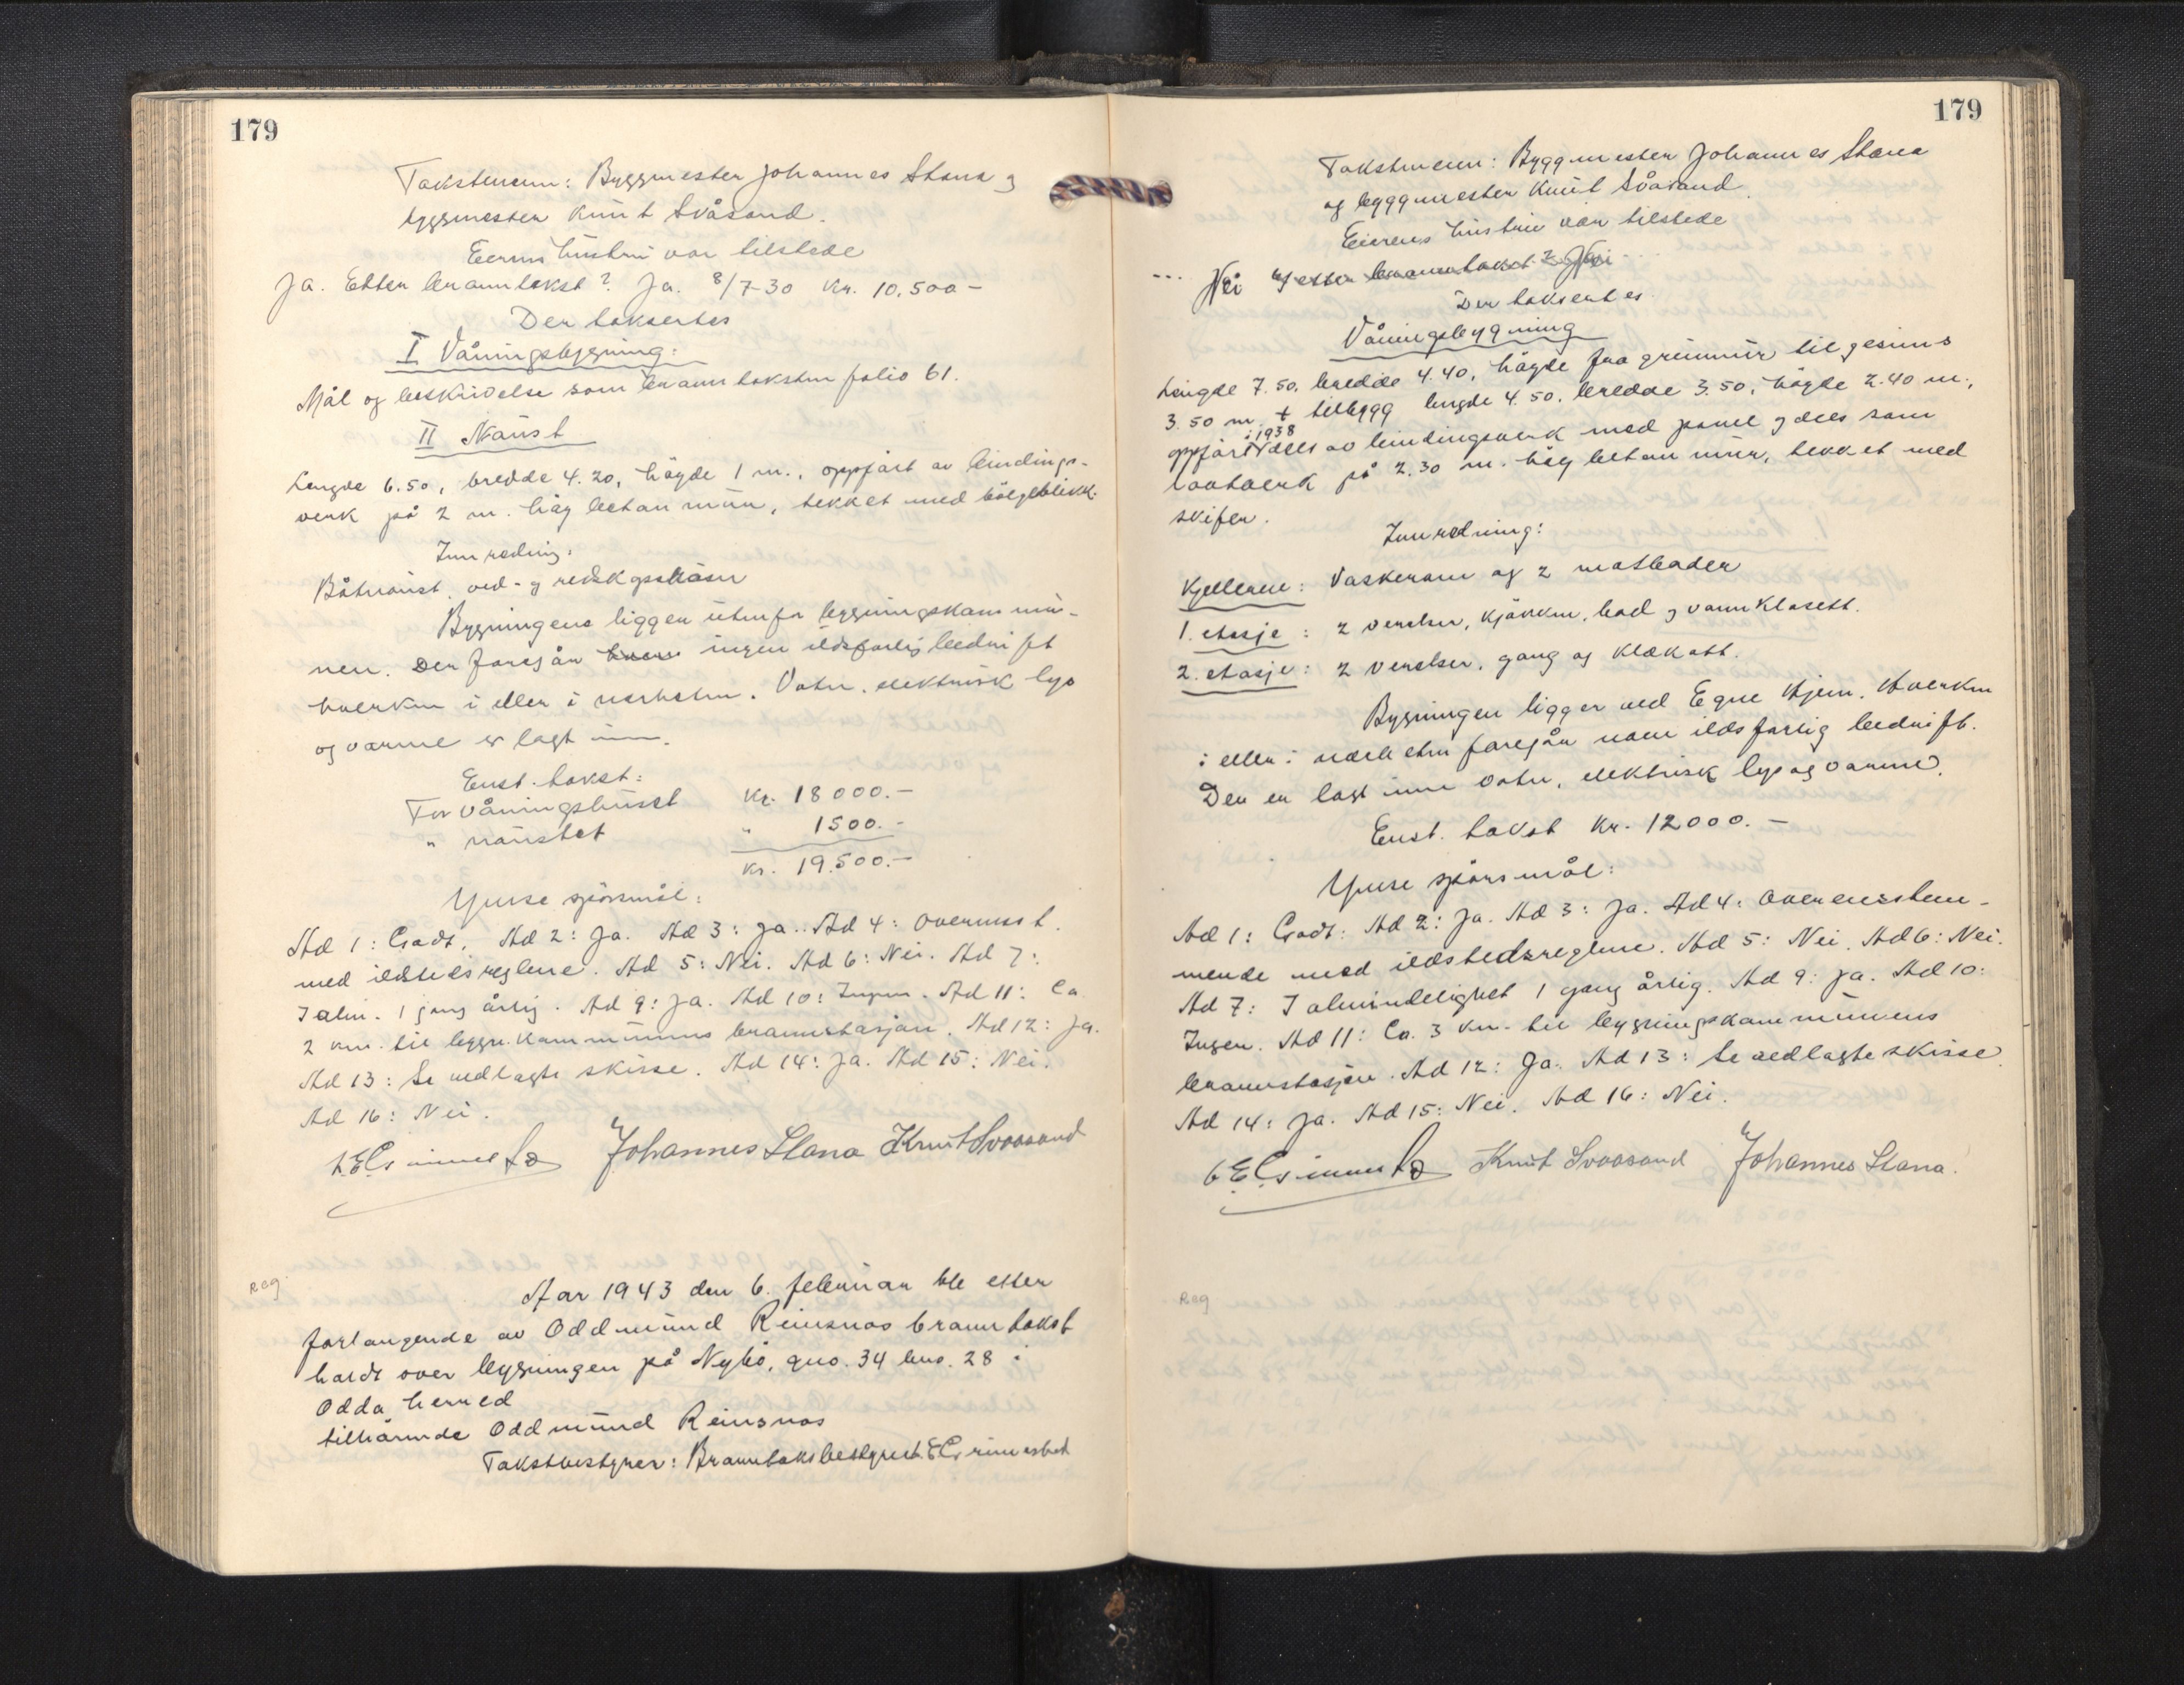 179
Takstmenn: Byggmester Johannes Stana og
byggmester Knut Svåsand.
Eierens hustru var tilstede
Ja. Etter branntakst? Ja. 8/7-30 Kr. 10.500-
Der taksertes
I Våningsbygning:
Mål og beskrivelse som branntaksten folio 61.
II Naust
Lengde 6.50, bredde 4.20, høyde 1 m., oppført av bindings-
verk på 2 m. høy betonmur, tekket med bølgeblikk.
Innredning:
Båtnaust, ved- og redskapshus
Bygningene ligger utenfor bygningskommu-
nen. Der foregår ingen ildsfarlig bedrift
hverken i eller i nærheten. Vatn, elektrisk lys
og varme er lagt inn.
Enst. takst:
For våningshuset Kr. 18000.-
" naustet " 1500.-
Kr. 19.500.-
Ymse spörsmål:
Ad 1: Godt. Ad 2: Ja. Ad 3: Ja. Ad 4: Overensst.
med ildstedsreglene. Ad 5: Nei. Ad 6: Nei. Ad 7:
I alm. 1 gang årlig. Ad 9: Ja. Ad 10: Ingen. Ad 11: Ca
2 km. til bygn.kommunens brannstasjon. Ad 12: Ja.
Ad 13: Se vedlagte skisse. Ad 14: Ja. Ad 15: Nei.
Ad 16: Nei.
Johannes Stana Knut Svaasand
Reg.
Aar 1943 den 6. februar ble etter
forlangende av Oddmund Reinsnos branntakst
holdt over bygningen på Nybö, gno. 34 bno. 28 i
Odda herred
tilhörende Oddmund Reinsnos
Takstbestyrer: Branntakstbestyrer E.
179
Takstmenn: Byggmester Johannes Stana
og byggmester Knut Svåsand
Eierens hustru var tilstede
... Nei Ny etter branntakst? Nei
Der taksertes
Våningsbygning
Lengde 7.50, bredde 4.40, höyde fra grunnmur til gesims
3.50 m. + tilbygg lengde 4.50, bredde 3.50, höyde 2.40 m.,
oppfört i 1938 dels av bindingsverk med panel og dels som
laftverk på 2.30 m. höy betonmur, tekket med
skifer.
Innredning:
Kjelleren: Vaskerom og 2 matboder
1. etasje: 2 verelser, kjökken, bad og vannklosett.
2. etasje: 2 verelser, gang og klekott.
Bygningen ligger ved Egne Hjem. Hverken
i eller i nærheten foregår noen ildsfarlig bedrift.
Der er lagt inn vatn, elektrisk lys og varme.
Enst. takst Kr. 12000.-
Ymse spörsmål:
Ad 1: Godt. Ad 2: Ja. Ad 3: Ja. Ad 4: Overensstem-
mende med ildstedsreglene. Ad 5: Nei. Ad 6: Nei.
Ad 7: I alminnelighet 1 gang årlig. Ad 9: Ja. Ad 10:
Ingen. Ad 11: Ca. 3 km. til bygningskommunens
brannstasjon. Ad 12: Ja. Ad 13: Se vedlagte skisse
Ad 14: Ja. Ad 15: Nei. Ad 16: Nei.
Knut Svaasand Johannes Stana.